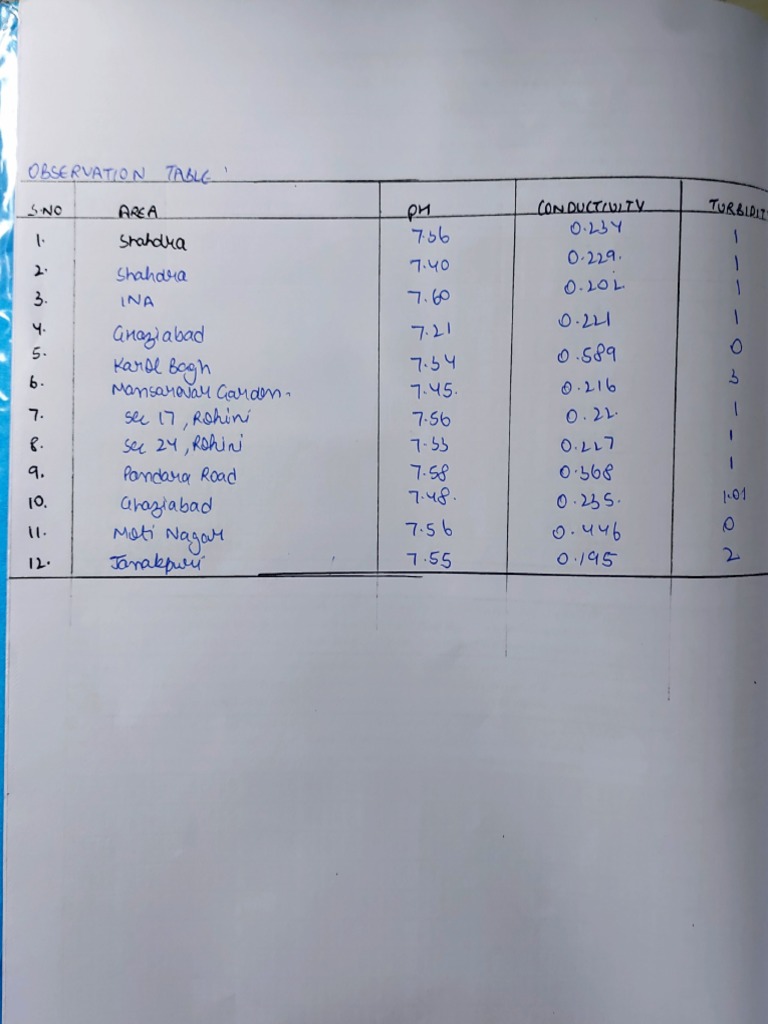 OBSERVATION TABLE
S.NO AREA PH CONDUCTIVITY TURBIDIT
1. Shahdra 7.36 0.234 1
2. Shahdra 7.40 0.229. 1
3. INA 7.60 0.202 1
4. Ghaziabad 7.21 0.221 1
5. Karol Bagh 7.34 0.589 0
6. Mansarovar Garden. 7.45. 0.216 3
7. Sec 17, Rohini 7.56 0.22. 1
8. Sec 24, Rohini 7.33 0.227 1
9. Pandara Road 7.58 0.368 1
10. Ghaziabad 7.48. 0.235. 1.01
11. Moti Nagar 7.56 0.446 0
12. Janakpuri 7.55 0.195 2